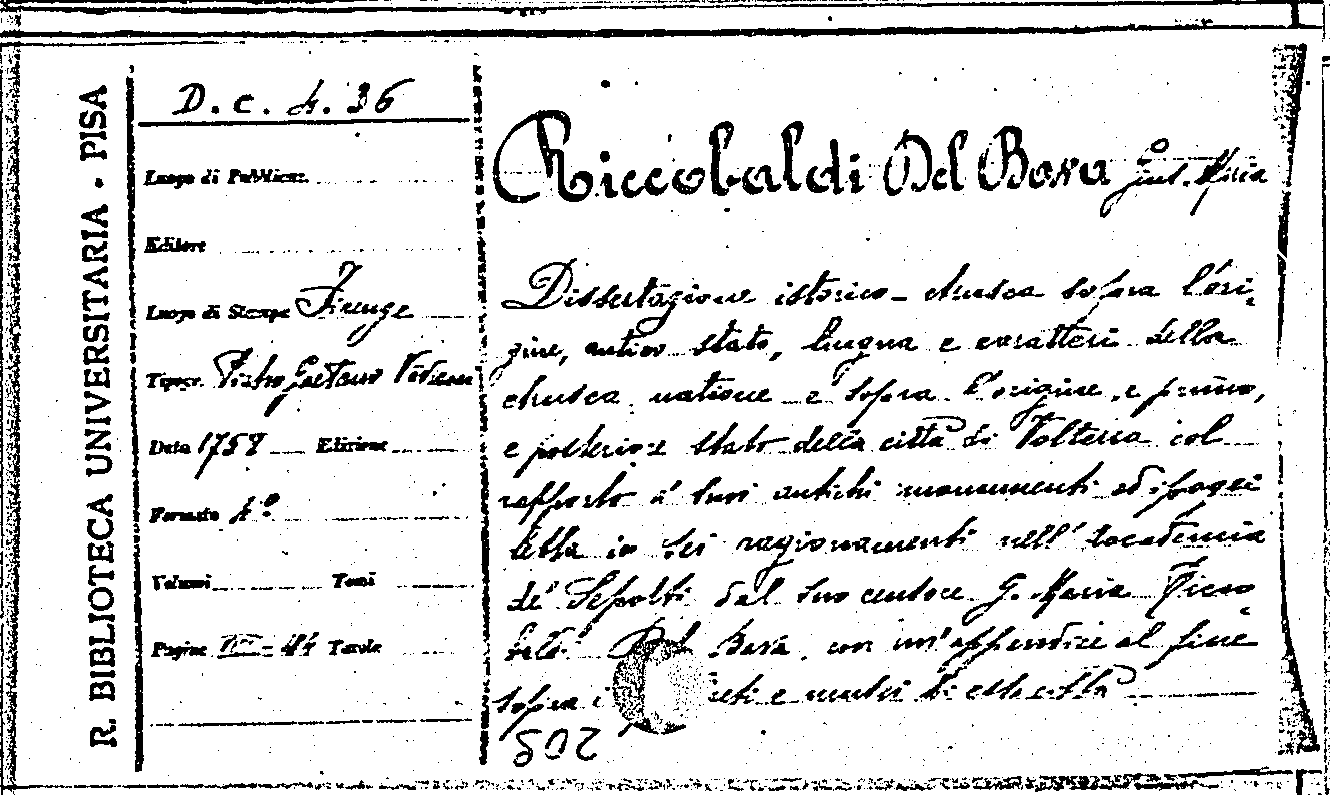 R. BIBLIOTECA UNIVERSITARIA - PISA
D. c. 4. 36
Luogo di Pubblicaz.
Editore
Luogo di Stampa Firenze
Tipogr. Pietro Gaetano Viviani
Data 1758 Edizione
Formato 4º
Volumi Tomi
Pagine Tavole
Riccobaldi Del Bava Gius. Maria
Dissertazione istorico-etrusca sopra l'ori-
gine, antico stato, lingua e caratteri della
etrusca natione e sopra l'origine, e primo,
e posteriore stato della città di Volterra col
rapporto a' suoi antichi monumenti ed ipogei
in sei ragionamenti nell'Accademia
de' Sepolti dal suo censore G. Maria Ricco-
baldi Del Bava, con un'appendice al fine
sopra i e di essa città
208